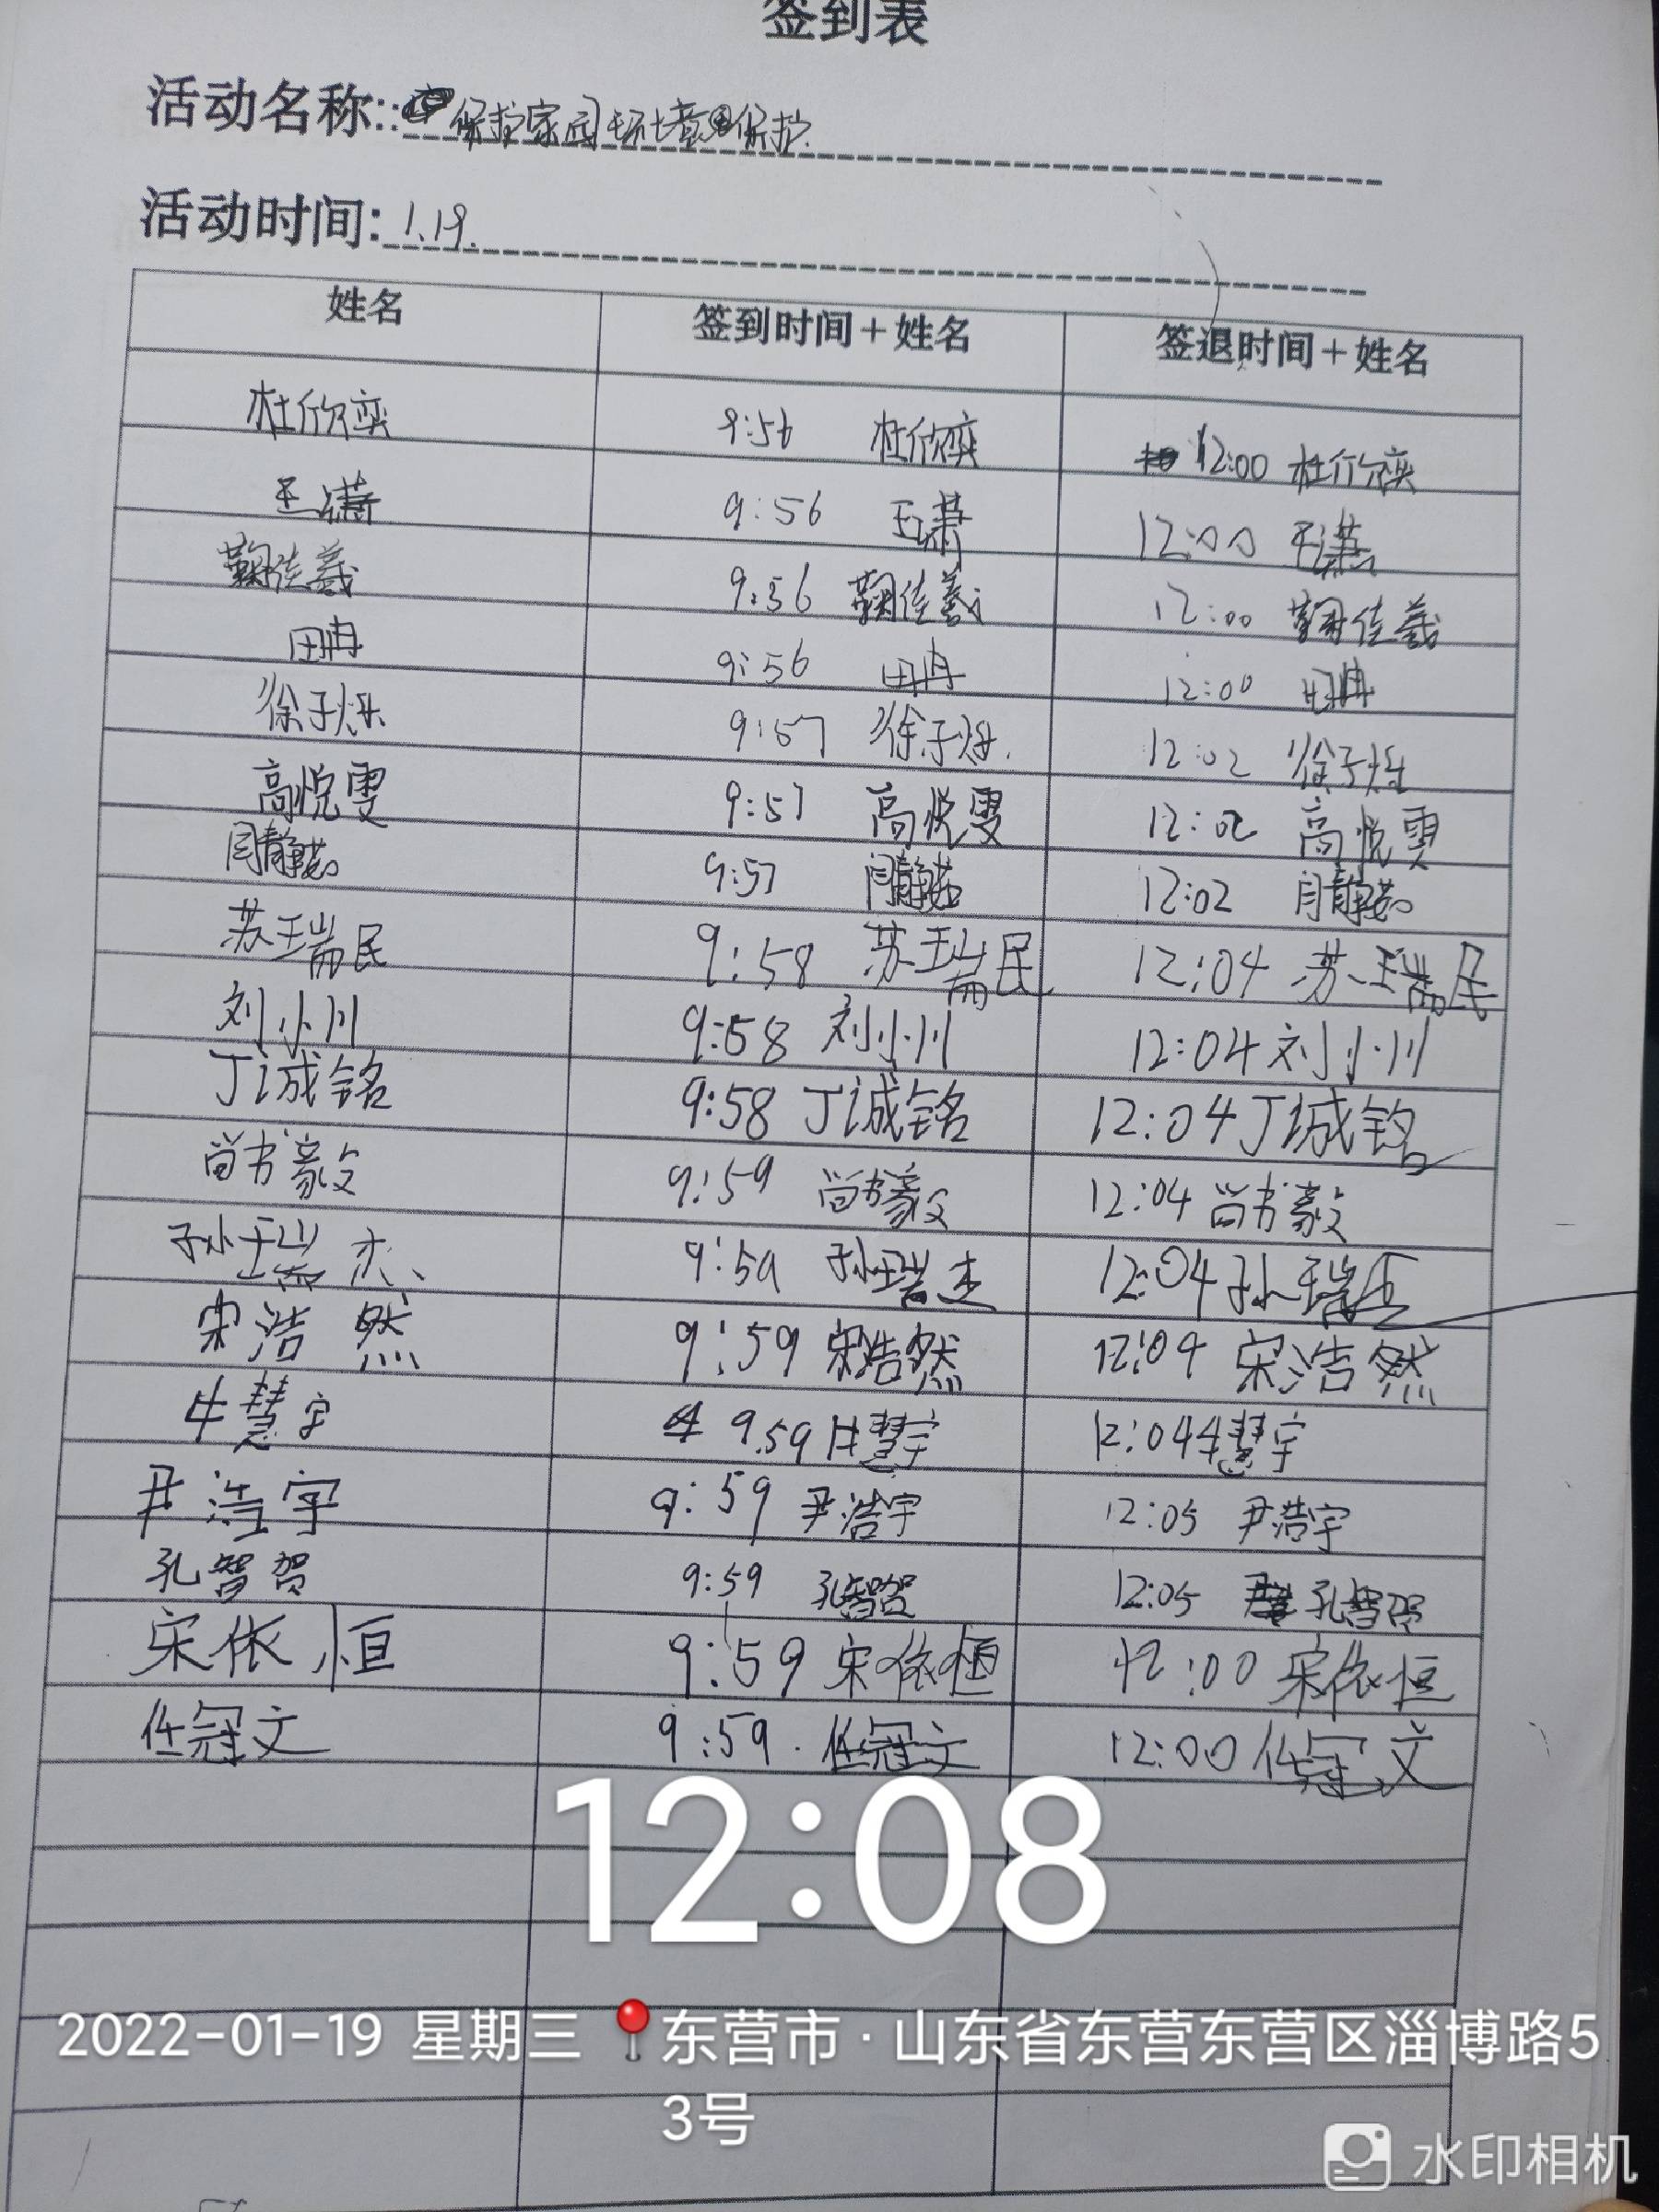 签到表
活动名称:: 保护家园环境保护
活动时间: 1.19.
姓名 签到时间+姓名 签退时间+姓名
杜欣奕 9:56 杜欣奕 12:00 杜欣奕
王潇 9:56 王潇 12:00 王潇
鞠佳羲 9:56 鞠佳羲 12:00 鞠佳羲
田冉 9:56 田冉 12:00 田冉
徐子烁 9:57 徐子烁 12:02 徐子烁
高悦雯 9:57 高悦雯 12:02 高悦雯
闫静茹 9:57 闫静茹 12:02 闫静茹
苏瑞民 9:58 苏瑞民 12:04 苏瑞民
刘小川 9:58 刘小川 12:04 刘小川
丁诚铭 9:58 丁诚铭 12:04 丁诚铭
尚书毅 9:59 尚书毅 12:04 尚书毅
孙瑞杰 9:59 孙瑞杰 12:04 孙瑞杰
宋浩然 9:59 宋浩然 12:04 宋浩然
牛慧宇 9.59 牛慧宇 12:04 牛慧宇
尹浩宇 9:59 尹浩宇 12:05 尹浩宇
孔智贺 9:59 孔智贺 12:05 孔智贺
宋依恒 9:59 宋依恒 12:00 宋依恒
任冠文 9:59. 任冠文 12:00 任冠文
12:08
2022-01-19 星期三 东营市·山东省东营东营区淄博路5
3号
水印相机